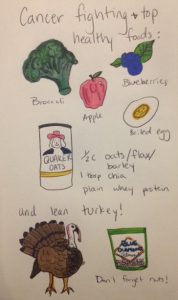 Cancer fighting + top
healthy foods:
Blueberries
Broccoli
Apple
Boiled egg
QUAKER
OATS
1/2 c oats/flax/
barley
1 tbsp chia
plain whey protein
and lean turkey!
BLUE
DIAMOND
Don't forget nuts!